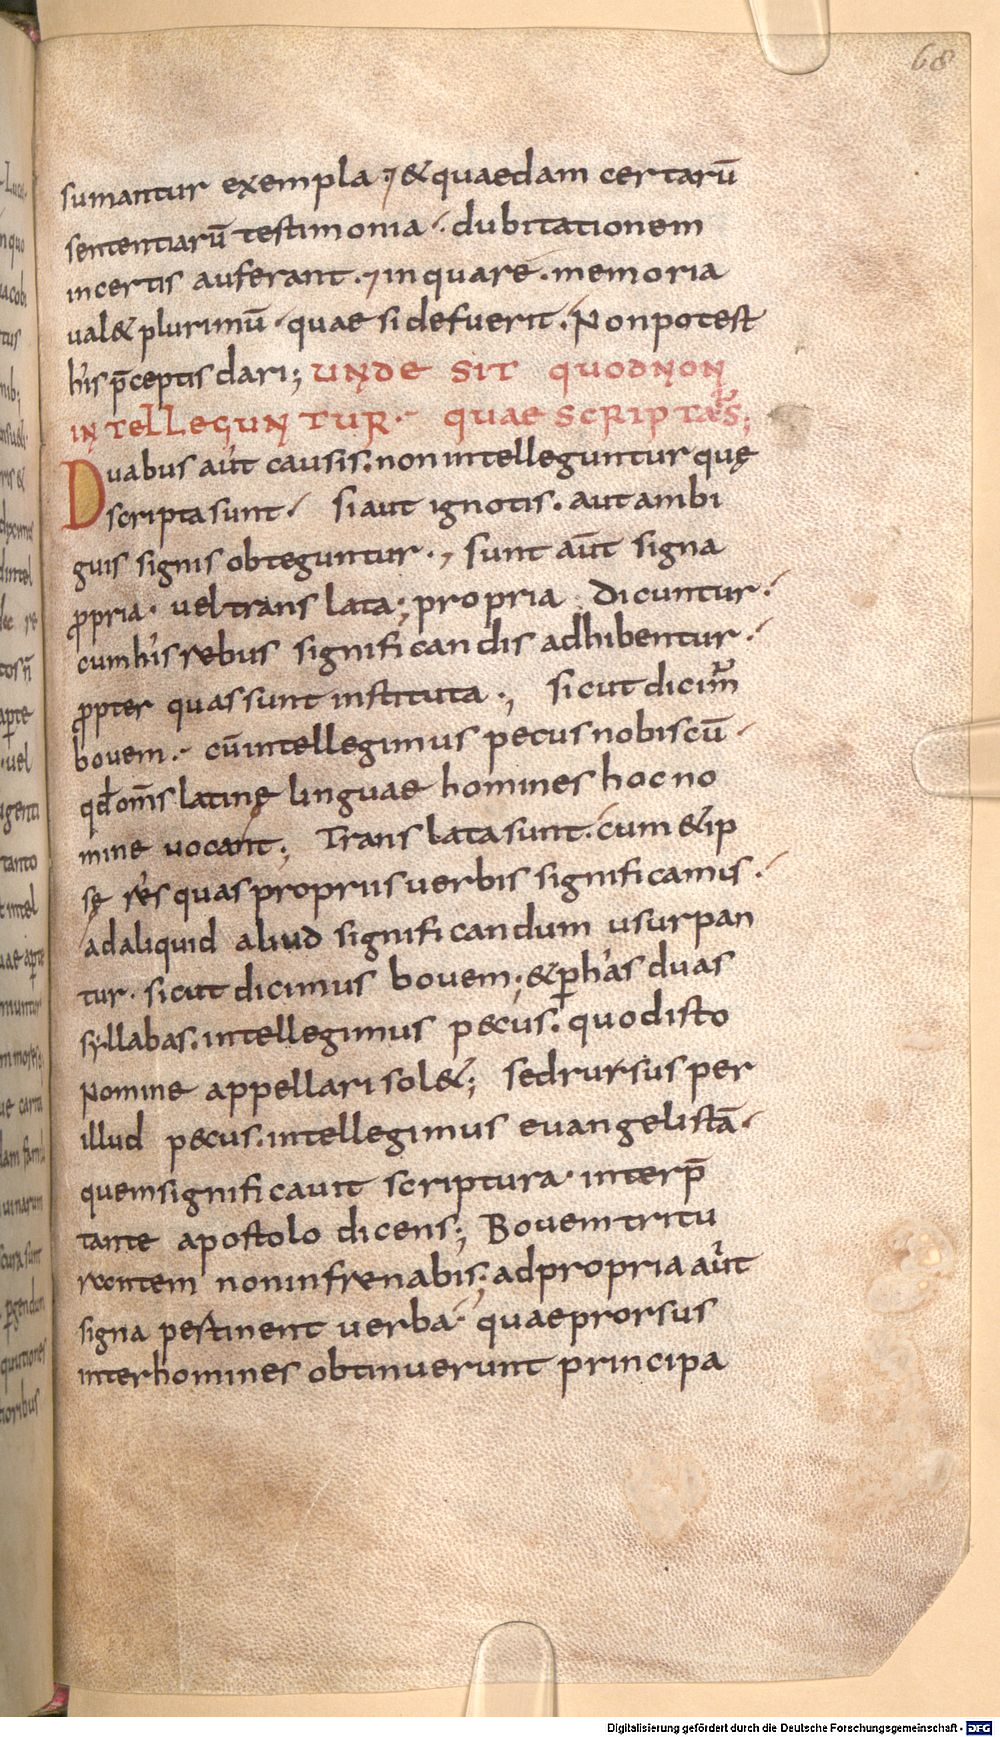 68
sumantur exempla ⁊ & quaedam certarū
sententiarū testimonia · dubitationem
incertis auferant · ⁊ in quare · memoria
ual& plurimū · quae si defuerit · Non potest
his p̄ceptis dari; UNDE SIT QUOD NON
INTELLEGUNTUR · QUAE SCRIPTA S̄;
Duabus aūt causis · non intelleguntur quę
scripta sunt · si aut ignotis · aut ambi
guis signis obteguntur ·, sunt aūt signa
ꝓpria · uel translata; propria · dicuntur ·
cum his rebus significandis adhibentur ·
ꝓpter quas sunt instituta ·, sicut dicim̄
bouem · cū intellegimus pecus nobiscū ·
qđ om̄s latinę linguae homines hoc no
mine uocant; Translata sunt · cum & ip
sę res quas propriis uerbis significamus ·
ad aliquid aliud significandum usurpan
tur · sicut dicimus bouem; & ꝑ has duas
syllabas · intellegimus pecus · quod isto
Nomine appellari sol&; sed rursus per
illud pecus · intellegimus euangelistā ·
quem significauit scriptura · interp̄
tante apostolo dicens; Bouem tritu
rantem non infrenabis; ad propria aūt
signa pertinent uerba · quae prorsus
inter homines obtinuerunt principa
Digitalisierung gefördert durch die Deutsche Forschungsgemeinschaft - DFG